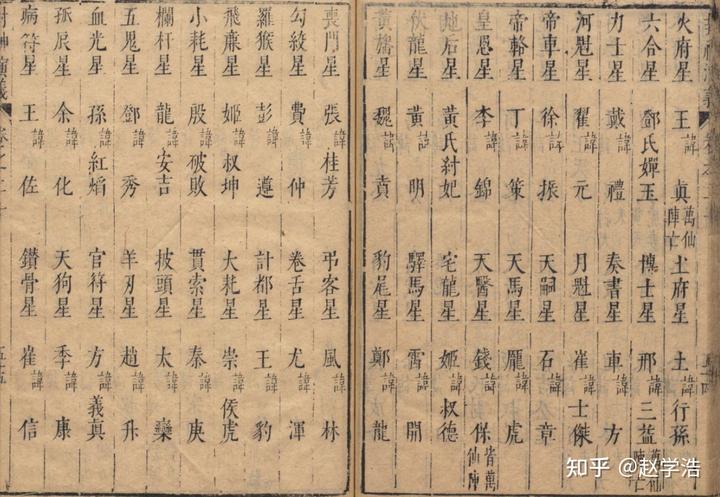 火府星 王諱真 萬仙陣亡 土府星 土諱行孫
六合星 鄧氏嬋玉 博士星 邢諱三益 萬仙陣亡
力士星 戴諱禮 奏書星 車諱方
河魁星 翟諱元 月魁星 崔諱士傑
帝車星 徐諱振 天嗣星 石諱章
帝輅星 丁諱策 天馬星 龐諱虎
皇恩星 李諱錦 天醫星 錢諱保 皆萬仙陣
地后星 黃氏紂妃 宅龍星 姬諱叔德
伏龍星 黃諱明 驛馬星 雷諱開
黃旛星 魏諱賁 豹尾星 鄭諱龍
喪門星 張諱桂芳 弔客星 風諱林
勾絞星 費諱仲 卷舌星 尤諱渾
羅猴星 彭諱遵 計都星 王諱豹
飛廉星 姬諱叔坤 大耗星 崇諱侯虎
小耗星 殷諱破敗 貫索星 秦諱庚
欄杆星 龍諱安吉 披頭星 太諱欒
五鬼星 鄧諱秀 羊刃星 趙諱升
血光星 孫諱紅焰 官符星 方諱義真
孤辰星 余諱化 天狗星 季諱康
病符星 王諱佐 鑽骨星 崔諱信
封神演義 卷之二十 五十五
知乎 @赵学浩